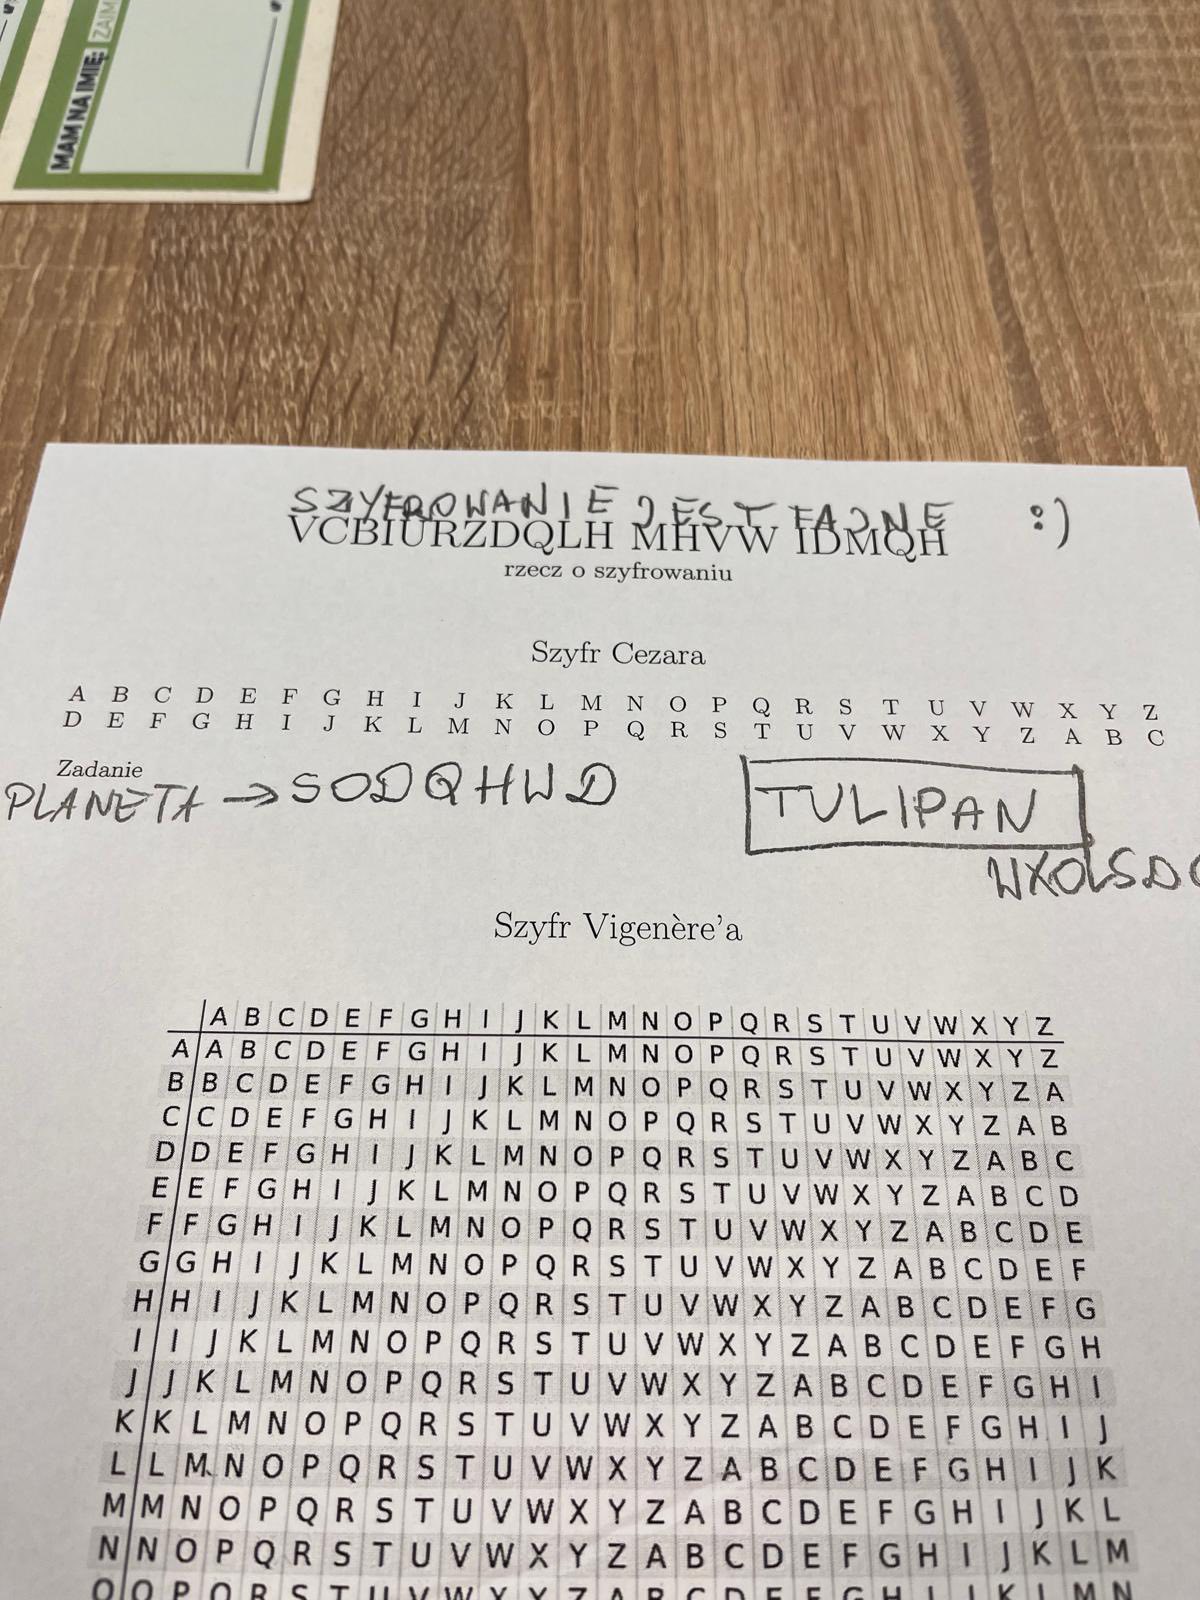 MAM NA IMIĘ:
ZAIM
SZYFROWANIE JEST FAJNE :)
VCBIURZDQLH MHVW IDMQH
rzecz o szyfrowaniu
Szyfr Cezara
A B C D E F G H I J K L M N O P Q R S T U V W X Y Z
D E F G H I J K L M N O P Q R S T U V W X Y Z A B C
Zadanie
PLANETA → SODQHWD
TULIPAN
WXOLSD
Szyfr Vigenère'a
A B C D E F G H I J K L M N O P Q R S T U V W X Y Z
A A B C D E F G H I J K L M N O P Q R S T U V W X Y Z
B B C D E F G H I J K L M N O P Q R S T U V W X Y Z A
C C D E F G H I J K L M N O P Q R S T U V W X Y Z A B
D D E F G H I J K L M N O P Q R S T U V W X Y Z A B C
E E F G H I J K L M N O P Q R S T U V W X Y Z A B C D
F F G H I J K L M N O P Q R S T U V W X Y Z A B C D E
G G H I J K L M N O P Q R S T U V W X Y Z A B C D E F
H H I J K L M N O P Q R S T U V W X Y Z A B C D E F G
I I J K L M N O P Q R S T U V W X Y Z A B C D E F G H
J J K L M N O P Q R S T U V W X Y Z A B C D E F G H I
K K L M N O P Q R S T U V W X Y Z A B C D E F G H I J
L L M N O P Q R S T U V W X Y Z A B C D E F G H I J K
M M N O P Q R S T U V W X Y Z A B C D E F G H I J K L
N N O P Q R S T U V W X Y Z A B C D E F G H I J K L M
O O P Q R S T U V W X Y Z A B C D E F G H I J K L M N